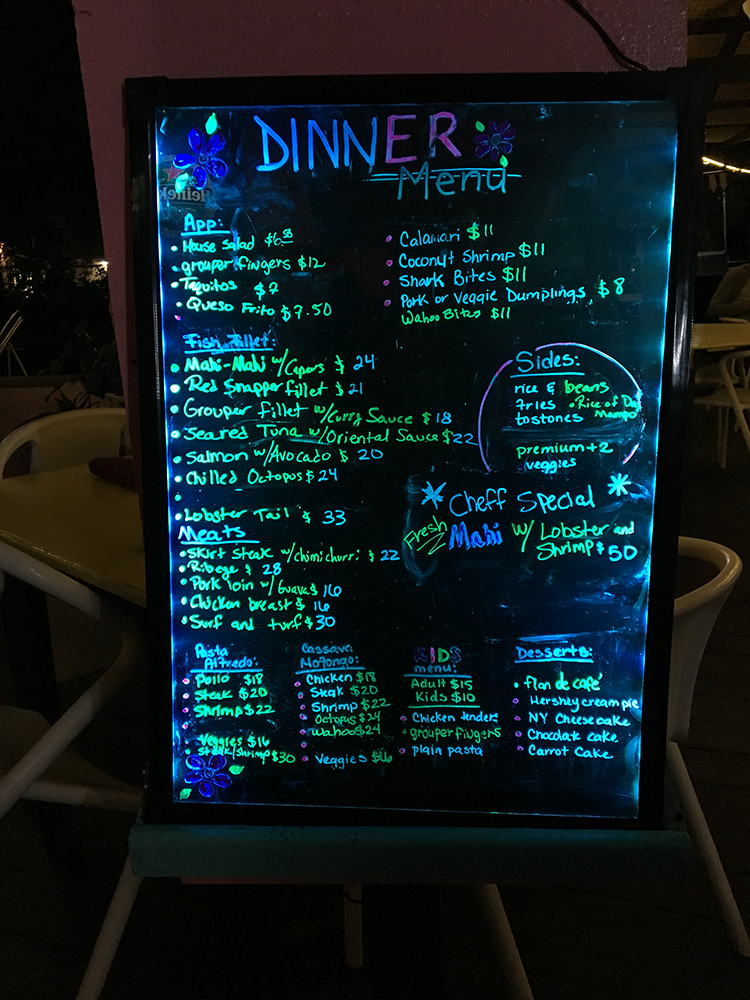 DINNER
Menu
Heinek
App:
• House Salad $6.50
• grouper fingers $12
• Taquitos $7
• Queso Frito $7.50
• Calamari $11
• Coconut Shrimp $11
• Shark Bites $11
• Pork or Veggie Dumplings, $8
Wahoo Bites $11
Fish Fillet:
• Mahi-Mahi w/Capers $ 24
• Red Snapper fillet $ 21
• Grouper fillet w/Curry Sauce $ 18
• Seared Tuna w/Oriental Sauce $22
• Salmon w/Avocado $ 20
• Chilled Octopus $ 24
• Lobster Tail $ 33
Sides:
rice & beans
fries • Rice of Day
tostones Mampo
premium +2
veggies
Cheff Special
Fresh Mahi w/ Lobster and
Shrimp $ 50
Meats
• Skirt Steak w/chimichurri $ 22
• Ribeye $ 28
• Pork loin w/Guava $ 16
• Chicken breast $ 16
• Surf and turf $ 30
Pasta
Alfredo:
• Pollo $18
• Steak $20
• Shrimp $22
• Veggies $16
• Steak/shrimp $30
Cassave
Mofongo:
• Chicken $18
• Steak $20
• Shrimp $22
• Octopus $24
• Wahoo $24
• Veggies $16
KIDS
menu:
Adult $15
Kids $10
• Chicken tender
• grouper fingers
• plain pasta
Desserts:
• flan de café
• Hershey cream pie
• NY Cheesecake
• Chocolate Cake
• Carrot Cake